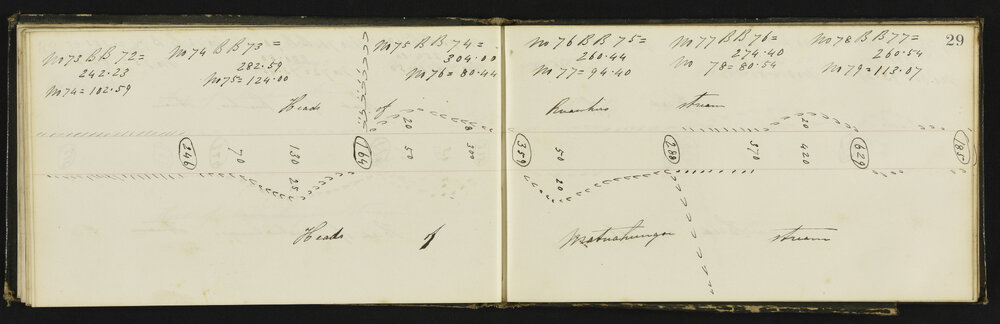 No 73 B B 72=
242.23
No 74 = 102.59
No 74 B B 73 =
282.59
No 75 = 124.00
No 75 B B 74 =
304.00
No 76 = 80.44
No 76 B B 75 =
260.44
No 77 = 94.40
No 77 B B 76 =
274.40
No 78 = 80.54
No 78 B B 77 =
260.54
No 79 = 113.07
29
Heads of stream
20 8 20
246 70 130 164 50 300 359 50 288 370 420 629 185
25 20
Heads of stream